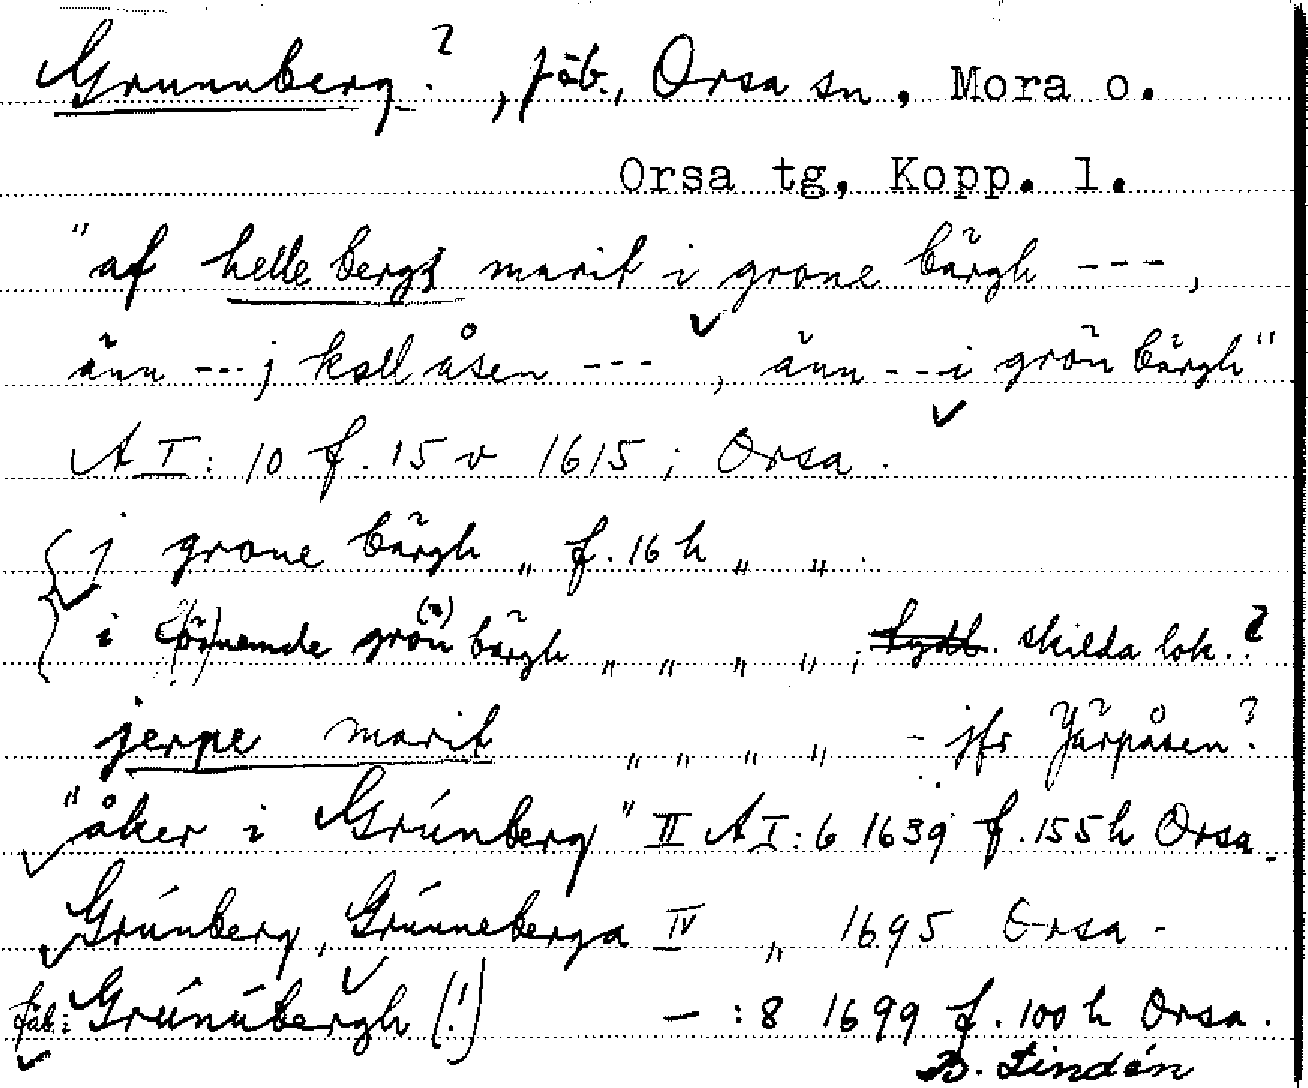 Grunuberg?, fäb., Orsa sn, Mora o.
Orsa tg, Kopp. l.
"af helle bergs marit i grone bärgh ---,
änn --- j kall åsen ---, änn --- i grön bärgh"
A I: 10 f. 15 v 1615; Orsa.
j grone bärgh " f. 16 h " " .
i grön(n) bärgh " " " " ; skilda lok.?
jerpe marit " " " " - jfr Järpåsen?
"åker i Grúnberg" II A I: 6 1639 f. 155 h Orsa.
Grúnberg, Grúnneberga IV " 1695 Orsa -
fäb: Grúnúbergh (!) — : 8 1699 f. 100 h Orsa.
B. Lindén